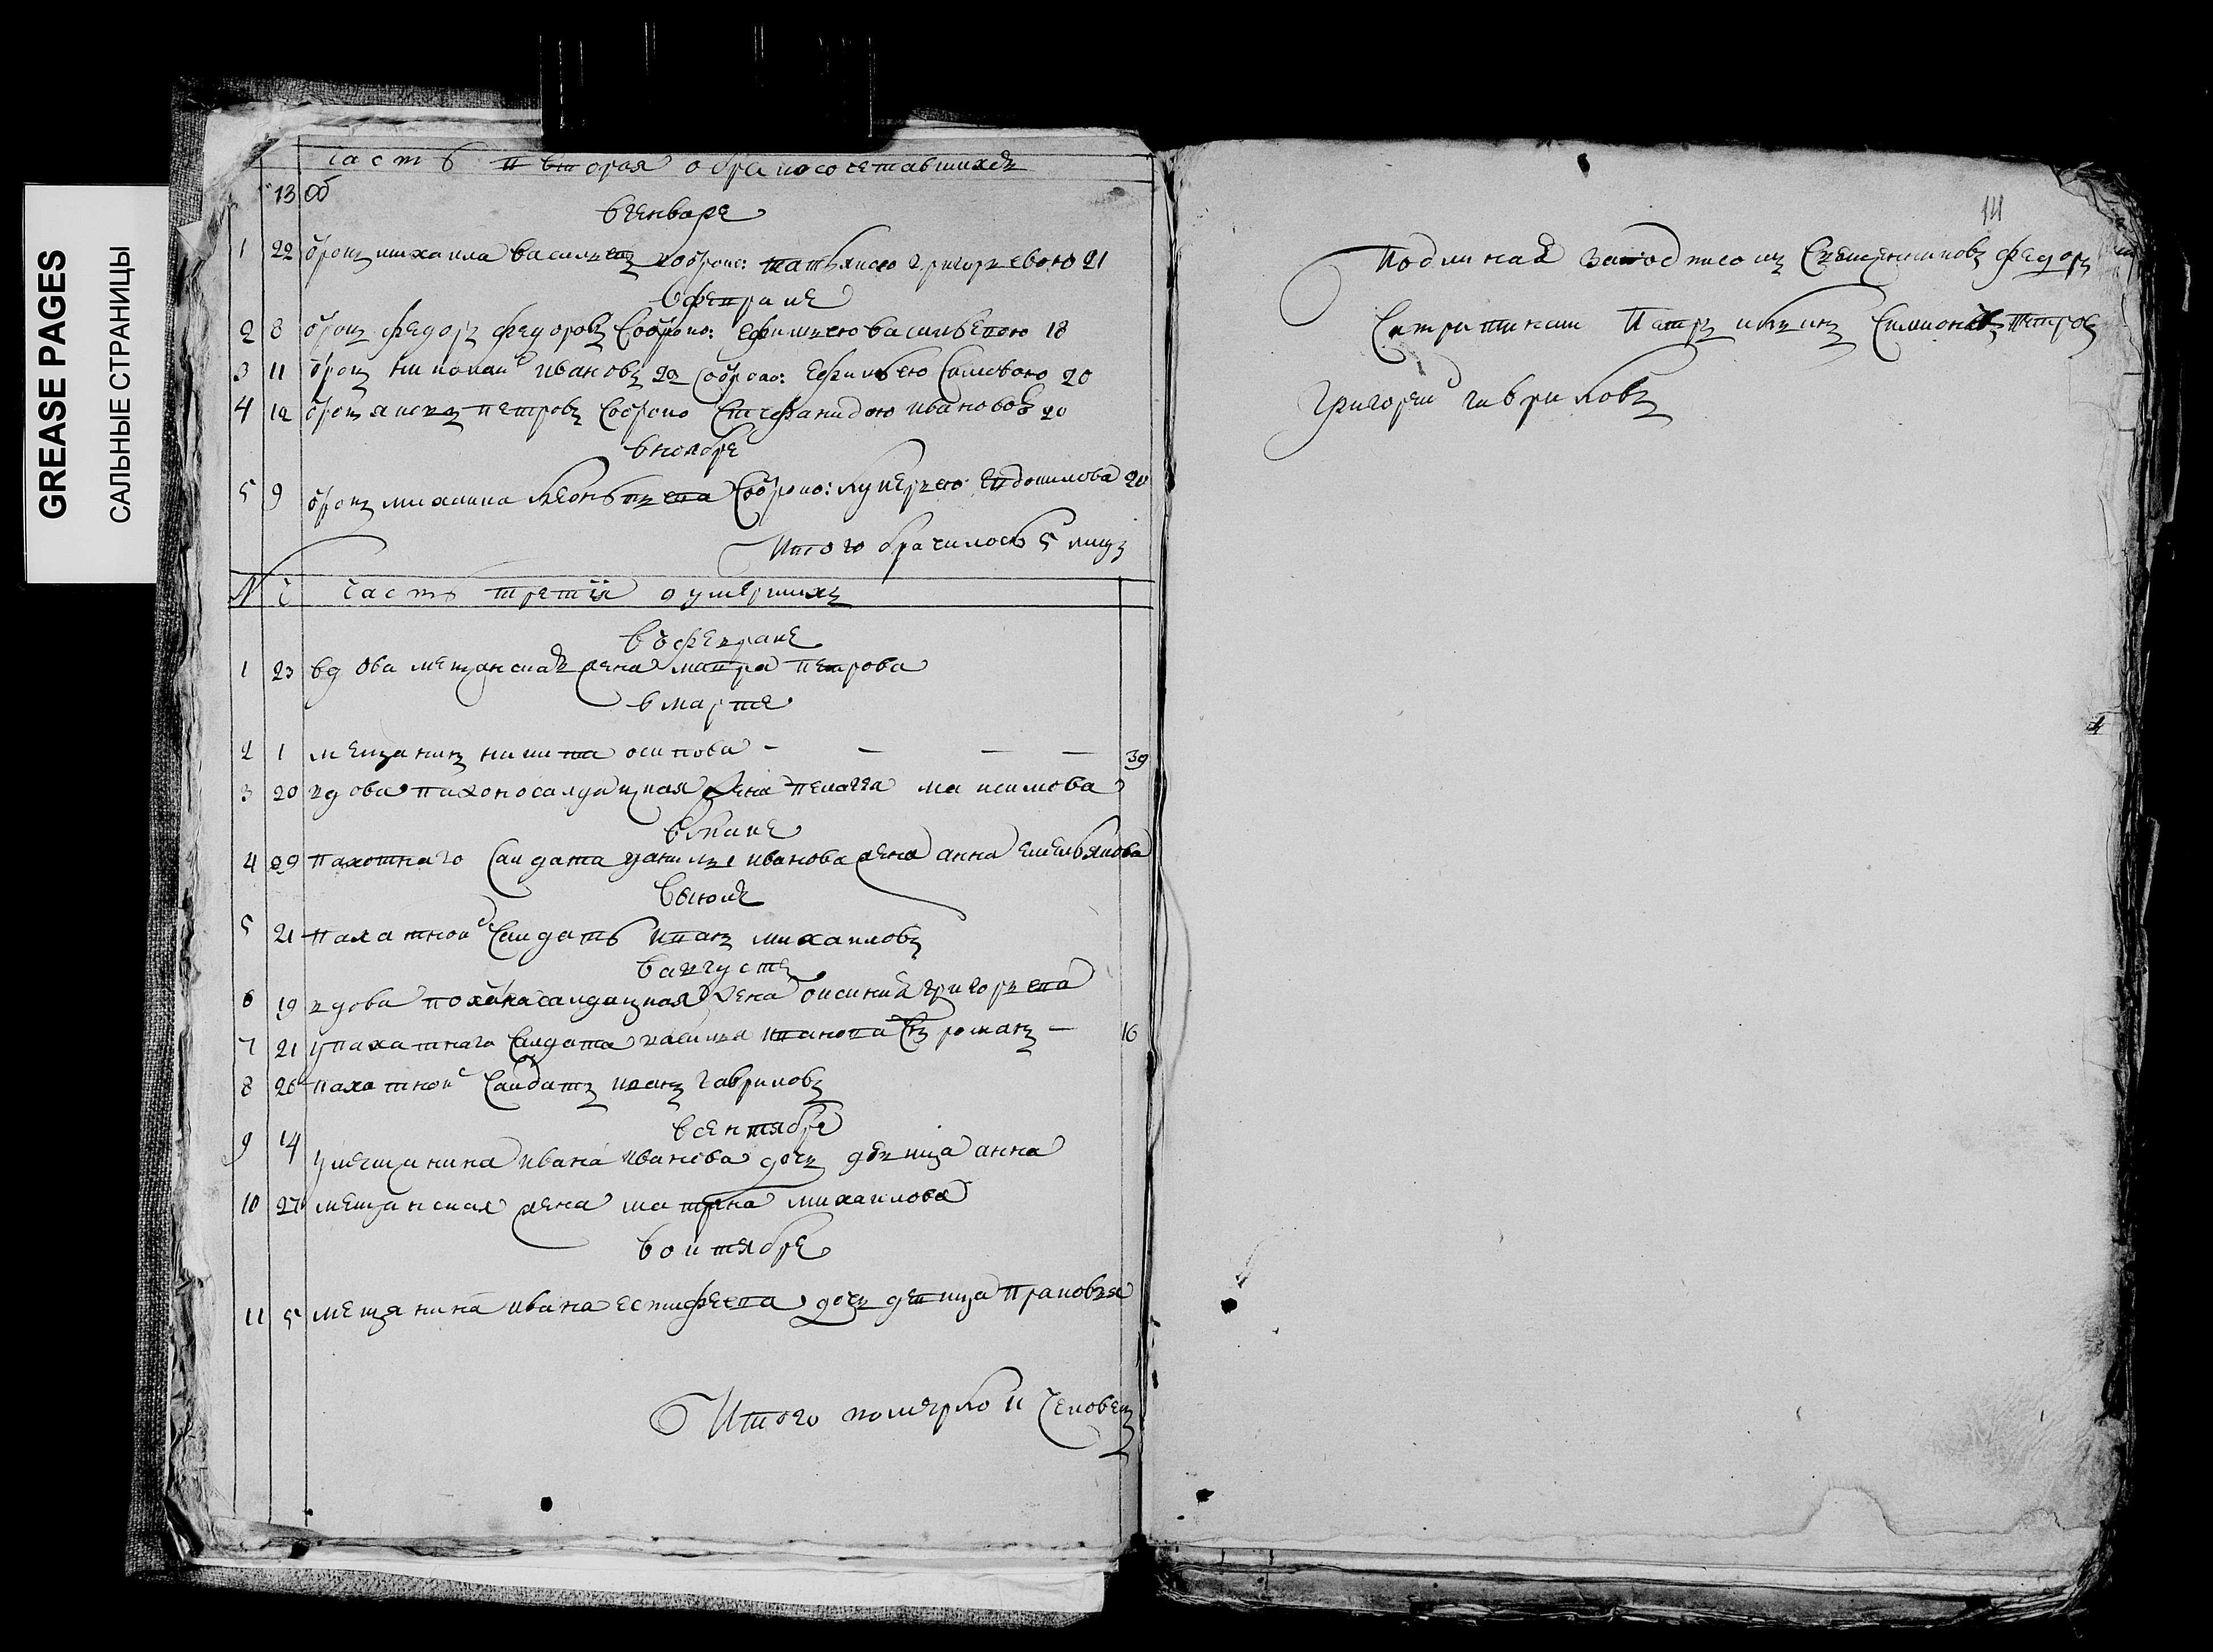 GREASE PAGES
САЛЬНЫЕ СТРАНИЦЫ
часть вторая о бракосочетавшихся
13 об
в генваре
1 22 отрок михаила васильев отрок: татьяною григорьевою 21
в феврале
2 8 отрок федор федоровъ с отроко: ефимиею васильевою 18
3 11 отрок николай ивановъ 22 с отроко: ефимьею 20
4 12 отрок яковъ петровъ с отроко стефанидою ивановой 20
в ноябре
5 9 отрок михаила леонтьева с отроко: лукерьею евдокимова 20
Итого брачилось 5 лицъ
№ Ч часть третія о умершихъ
въ феврале
1 23 вдова мещанская жена мавра петрова
в марте
2 1 мещанинъ никита осипова - — — — 39
3 20 вдова пахоносалдацкая жена пелагея максимова
в мае
4 29 пахотнаго салдата данилы иванова жена анна емельянова
в июле
5 21 пахатной салдатъ иванъ михаиловъ
в августе
6 19 вдова пахонасалдацкая жена аксинія григорьева
7 21 у пахатнаго салдата василья иванова сынъ романъ — 16
8 26 пахатной салдатъ иванъ гавриловъ
в сентябре
9 14 у мещанина ивана иванова дочь девица анна
10 27 мещанская жена матрена михаилова
в октябре
11 5 мещанина ивана естифеева дочь девица праковья
Итого померло 11 человекъ
14
Подлиная за подписомъ священниковъ федоръ
петръ симионъ петровъ
григорей гавриловъ